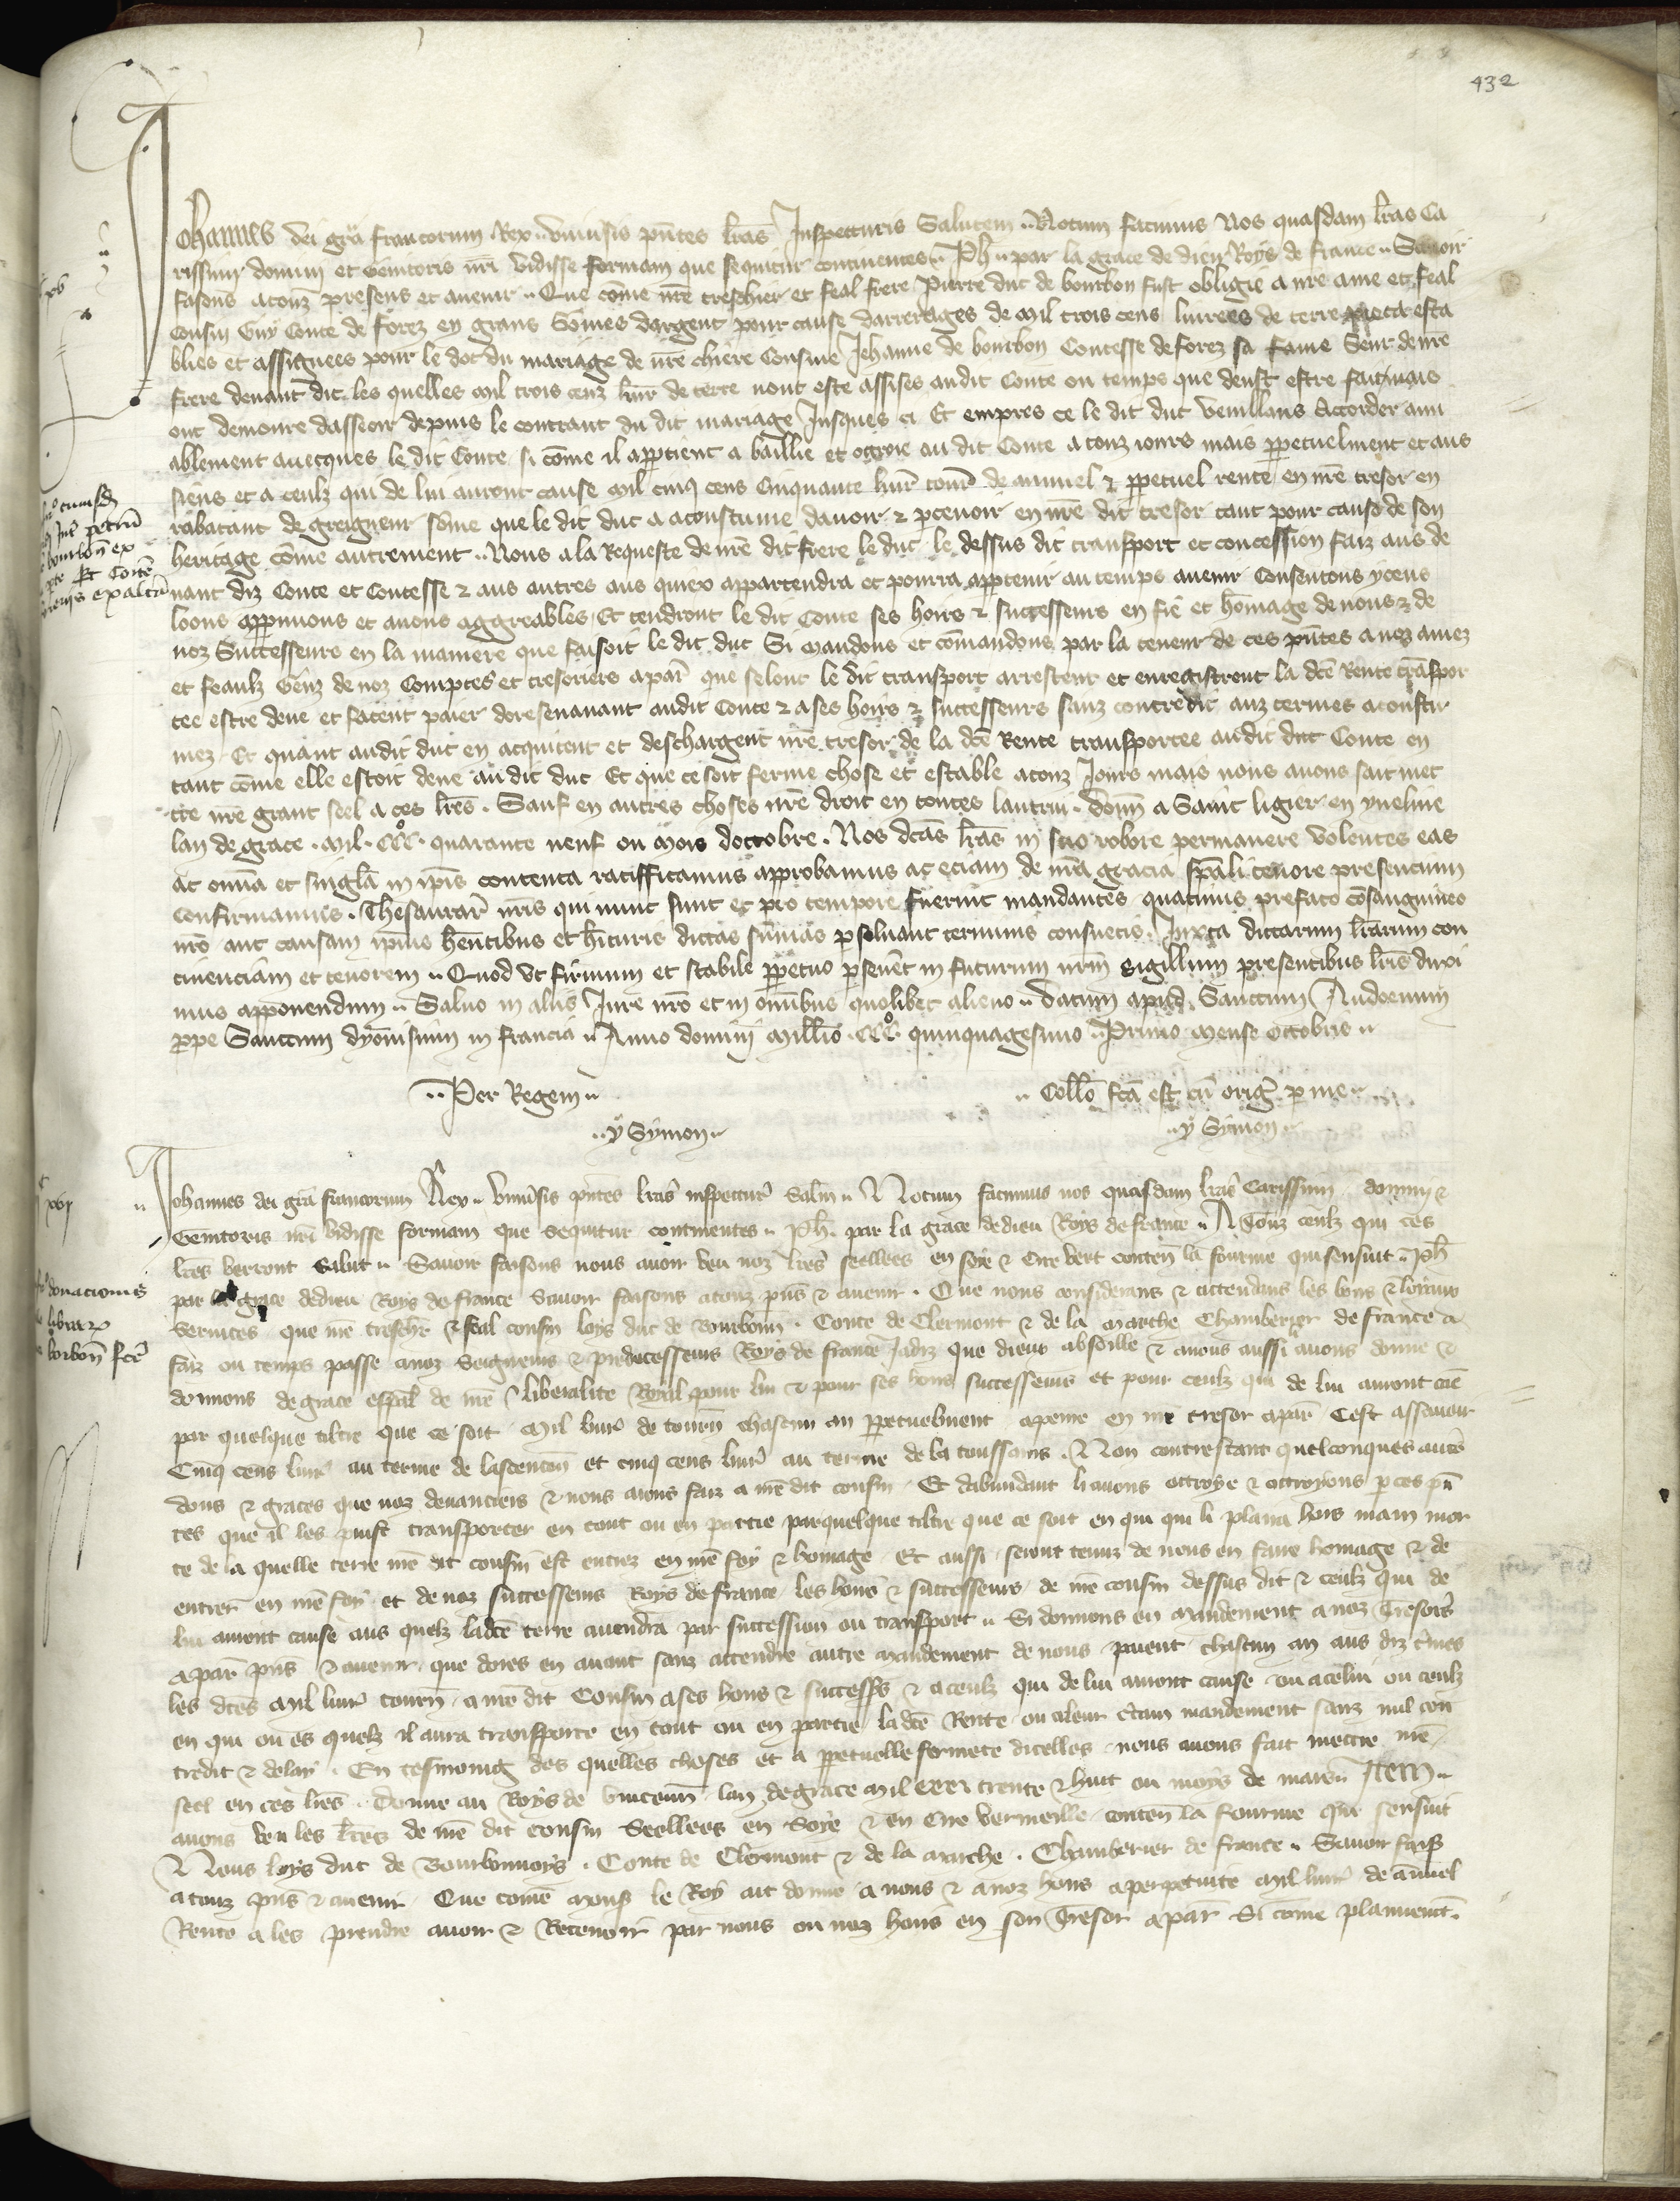 432
Johannes dei gra francorum Rex universis pntes lras Inspecturis Salutem Notum facimus Nos quasdam lras Ca
rissimi domini et Genitoris nri vidisse formam que sequitur continentes Ph par la grace de dieu Roys de france Savoir
fasons a touz presens et avenir Que come nre treschier et feal frere Pierre duc de bourbon fust obligie a nre ame et feal
Cousin Guy Conte de forez en grans Somes dargent pour cause darrerages de Mil trois cens livrees de terre esta
blies et assignees pour le dot du mariage de nre chiere Cousine Jehanne de bourbon Contesse de forez sa fame Seur de nre
frere devant dit les quelles mil trois cenz livr de terre nont este assises audit Conte ou temps que deust estre fait mais
ont demoure dasseoir depuis le contraut du dit mariage Jusques ci Et empres ce le dit duc veuillans Accorder ami
ablement avecques le dit Conte si come il appartient a baillie et ogroie au dit Conte a touz jours mais perpetuelment et aus
siens et a ceulz qui de lui auront cause mil cinq cens Cinquante livr tourn de annuel et perpetuel rente en nre tresor en
rabatant de greigneur some que le dit duc a acoustume davoir et percevoir en nre dit tresor tant pour cause de son
heritage come autrement Nous a la Requeste de nre dit frere le duc le dessus dit transport et concession faiz aus de
vant diz Conte et Contesse et aus autres aus quiex appartendra et pourra appartenir au temps avenir Consentons yceus
loons approuvons et avons aggreables Et tendront le dit Conte ses hoirs et successeurs en fie et homage de nous et de
noz Successeurs en la maniere que faisoit le dit duc Si mandons et comandons par la teneur de ces pntes a noz amez
et feaulz Genz de noz Comptes et tresoriers a par que selont le dit transport arrestent et enregistrent la dce Rente transpor
tee estre deue et facent paier doresenavant audit Conte et a ses hoirs et successeurs sanz contredit auz termes acoustu
mez Et quant audit duc en acquitent et deschargent nre tresor de la dce Rente transportee audit duc Conte en
tant come elle estoit deue au dit duc Et que ce soit ferme chose et estable a touz Jours mais nous avons fait met
tre nre grant seel a ces lres Sauf en autres choses nre droit en toutes lautrui donn a Saint ligier en yveline
lan de grace mil CCC quarante neuf ou Mois doctobre Nos dcas lras in suo robore permanere volentes eas
ac omnia et singla in ipis contenta ratifficamus approbamus ac eciam de nra gracia spali tenore presentium
confirmamus Thesaurar nris qui nunc sunt et pro tempore fuerint mandantes quatinus prefato consanguineo
nro aut causam ipius hentibus et hituris dictas sumas persolvant terminis consuetis Juxta dictarum lrarum con
tinenciam et tenorem Quod ut firmum et stabile perpetuo perseveret in futurum nrm sigillum presentibus lris duxi
mus apponendum Salvo in aliis Jure nro et in omibus quolibet alieno Datum apud Sanctum Audoenum
prope Sanctum dyonisium in francia Anno domini Millio CCC quinquagesimo Primo Mense octobris
Per Regem
Collo fca est cu orig per me
y Symon
y Symon
Johannes dei gra francorum Rex Univsis pntes lras inspectur Salm Notum facimus nos quasdam lras Carissimi domini et
Genitoris nri vidisse formam que sequitur continentes Ph par la grace de dieu Roys de france A Touz ceulz qui ces
lres verront Salut Savoir faisons nous avoir veu noz lres seellees en soie et Cire vert conten la fourme qui sensuit Ph
par la grace de dieu Roys de france Savoir faisons a touz pns et avenir Que nous considerans et attendans les bons et loyaux
Services que nre treschr et feal cousin loys duc de Bourbonn Conte de Clermont et de la Marche Chamberer de france a
faiz ou temps passe a noz Seigneurs et predecesseurs Roys de france Jadiz que dieux absoille et a nous aussi avons donne et
donnons de grace espal de nre liberalite Royal pour lui et pour ses hoirs successeurs et pour ceulz qui de lui auront cause
par quelque tiltre que ce soit Mil livr de tourn chascun an perpetuelment a penre en nre tresor a par Cest assavoir
Cinq cens livr au terme de lascencion et cinq cens livr au terme de la toussains Non contrestant quelconques autres
dons et graces que noz devanciers et nous aions faiz a nre dit cousin Et dabundant li avons ottroye et ottroyons p ces pn
tes que il les puist transporter en tout ou en partie par quelque tiltre que ce soit en qui qui li plaira hors main mor
te de la quelle terre nre dit cousin est entrez en nre foy et homage Et aussi seront tenuz de nous en faire homage et de
entrer en nre foy et de noz successeurs Roys de france les hoirs et successeurs de nre cousin dessus dit et ceulz qui de
lui auront cause aus quelz ladce terre avendra par succession ou transport Si donnons en mandement a noz Tresors
a par pns et avenir que dores en avant sanz attendre autre mandement de nous paient chascun an aus diz tmes
les dces mil livr tourn a nre dit Cousin a ses hoirs et successrs et a ceulz qui de lui auront cause ou a celui ou ceulz
en qui ou es quelz il aura transporte en tout ou en partie ladce Rente ou a leur certain mandement sanz nul con
tredit et delay En tesmoing des quelles choses et a perpetuelle fermete dicelles nous avons fait mettre nre
seel en ces lres Donne au Boys de Vincenn lan de grace mil CCC trente et huit ou moys de mars Item
avons veu les lres de nre dit cousin Seellees en Soye et en Cire vermeille conten la fourme qui sensuit
Nous loys duc de Bourbonnoys Conte de Clermont et de la Marche Chamberier de france Savoir fais
a touz pns et avenir Que come mons le Roy ait donne a nous et a noz hoirs a perpetuite mil livr de annuel
Rente a les prendre avoir et Recevoir par nous ou noz hoirs en son Tresor a par Si come plainemt